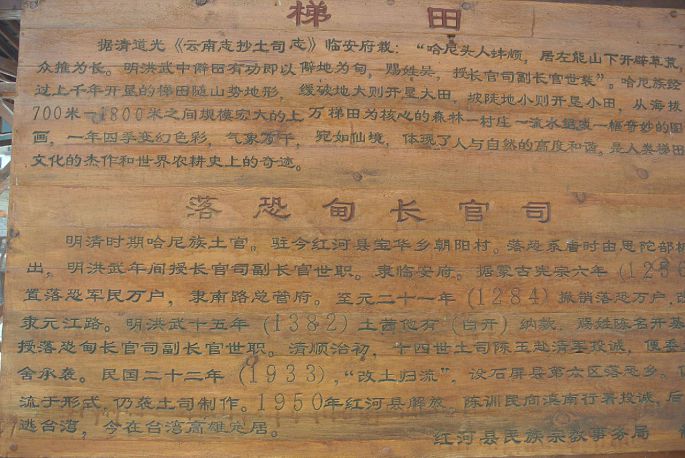 梯田
据清道光《云南志抄土司志》临安府载：“哈尼头人蚌颇，居左能山下开辟草荒，
众推为长。明洪武中僻田有功即以僻地为甸，赐姓吴，授长官司副长官世袭”。哈尼族经
过上千年开垦的梯田随山势地形，缓坡地大则开垦大田，坡陡地小则开垦小田，从海拔
700米—1800米之间规模宏大的上万梯田为核心的森林一村庄一流水构成一幅奇妙的图
画，一年四季变幻色彩，气象万千，宛如仙境，体现了人与自然的高度和谐。是人类梯田
文化的杰作和世界农耕史上的奇迹。
落恐甸长官司
明清时期哈尼族土官。驻今红河县宝华乡朝阳村。落恐系唐时由思陀部
出，明洪武年间授长官司副长官世职。隶临安府。据蒙古宪宗六年（1256
置落恐军民万户，隶南路总管府。至元二十一年（1284）撤销落恐万户，改
隶元江路。明洪武十五年（1382）土酋他有（白开）纳款，赐姓陈名开基
授落恐甸长官司副长官世职。清顺治初，十四世土司陈玉赴清军投诚，便委
舍承袭。民国二十二年（1933），“改土归流”，设石屏县第六区落恐乡。
流于形式，仍袭土司制作。1950年红河县解放。陈训民向滇南行署投诚，后
逃台湾，今在台湾高雄定居。
红河县民族宗教事务局